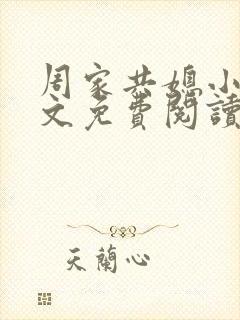 周家共媳小
文免費閱讀
天蘭心